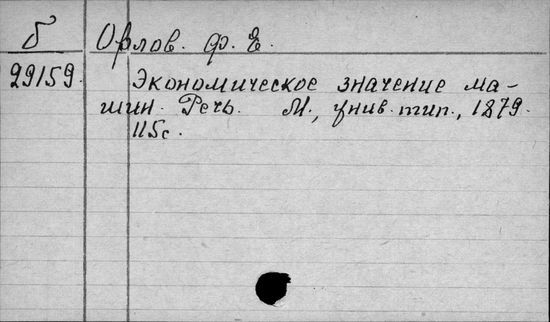 б Орлов. Ф. Е.
29159. Экономическое значение ма-
шин. Речь. М., унив. тип., 1879.
115с.